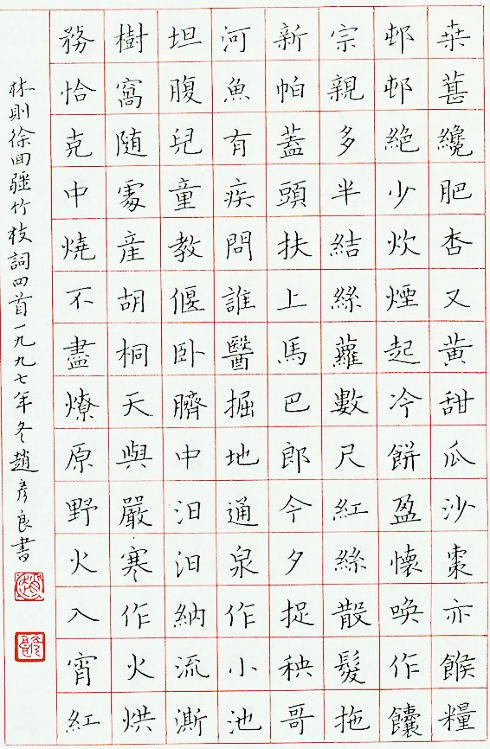 桒葚纔肥杏又黄甜瓜沙棗亦餱糧
邨邨絕少炊煙起冷餅盈懷喚作饢
宗親多半結絲蘿數尺紅絲散髮拖
新帕蓋頭扶上馬巴郎今夕捉秧哥
河魚有疾問誰醫掘地通泉作小池
坦腹兒童教偃卧臍中汩汩納流澌
樹窩随處産胡桐天與嚴寒作火烘
務恰克中燒不盡燎原野火入宵紅
林則徐囬疆竹枝詞四首一九九七年冬趙彥良書